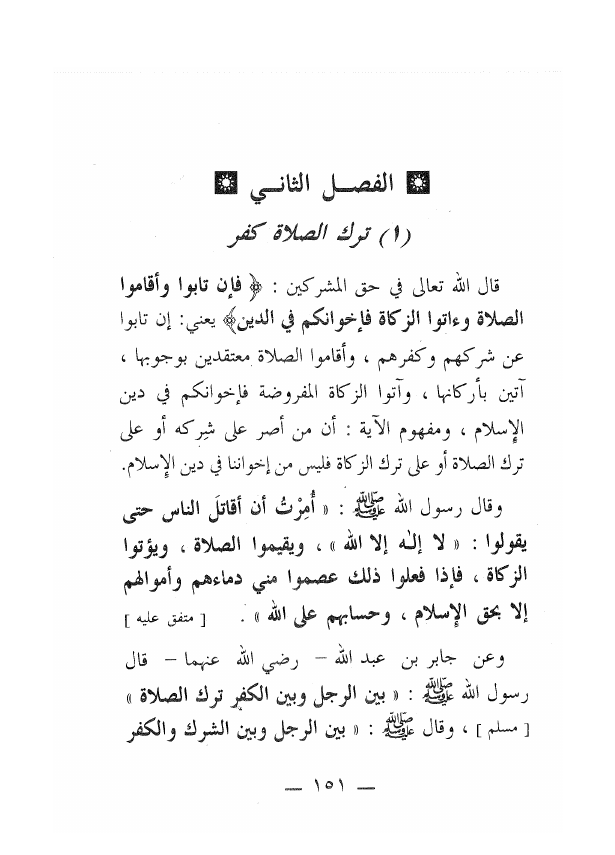 الفصـل الثانـي
(١) ترك الصلاة كفر
قال الله تعالى في حق المشركين : ﴿ فإن تابوا وأقاموا
الصلاة وءاتوا الزكاة فإخوانكم في الدين﴾ يعني: إن تابوا
عن شركهم وكفرهم ، وأقاموا الصلاة معتقدين بوجوبها ،
آتين بأركانها ، وآتوا الزكاة المفروضة فإخوانكم في دين
الإسلام ، ومفهوم الآية : أن من أصر على شركه أو على
ترك الصلاة أو على ترك الزكاة فليس من إخواننا في دين الإسلام.
وقال رسول الله ﷺ : « أُمِرْتُ أن أقاتلَ الناس حتى
يقولوا : « لا إلـٰه إلا الله » ، ويقيموا الصلاة ، ويؤتوا
الزكاة ، فإذا فعلوا ذلك عصموا مني دماءهم وأموالهم
إلا بحق الإسلام ، وحسابهم على الله » . [ متفق عليه ]
وعن جابر بن عبد الله – رضي الله عنهما – قال
رسول الله ﷺ : « بين الرجل وبين الكفر ترك الصلاة »
[ مسلم ] ، وقال ﷺ : « بين الرجل وبين الشرك والكفر
— ١٥١ —